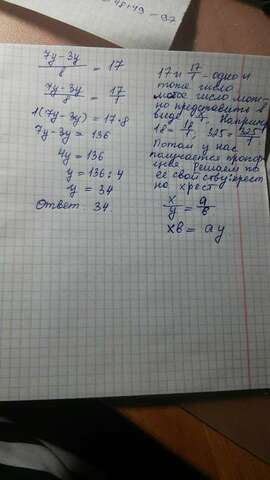 7y-3y/8 = 17
7y-3y/8 = 17/1
1(7y-3y) = 17·8
7y-3y = 136
4y = 136
y = 136:4
y = 34
Ответ 34
17 и 17/1 - одно и
тоже число
любое число мож-
но представить в
виде
18 = 18/1, 325 = 325/1
Потом у нас
получается пропор-
ция. Решаем по
её свойству: крест
на крест
x/y = a/b
xb = ay